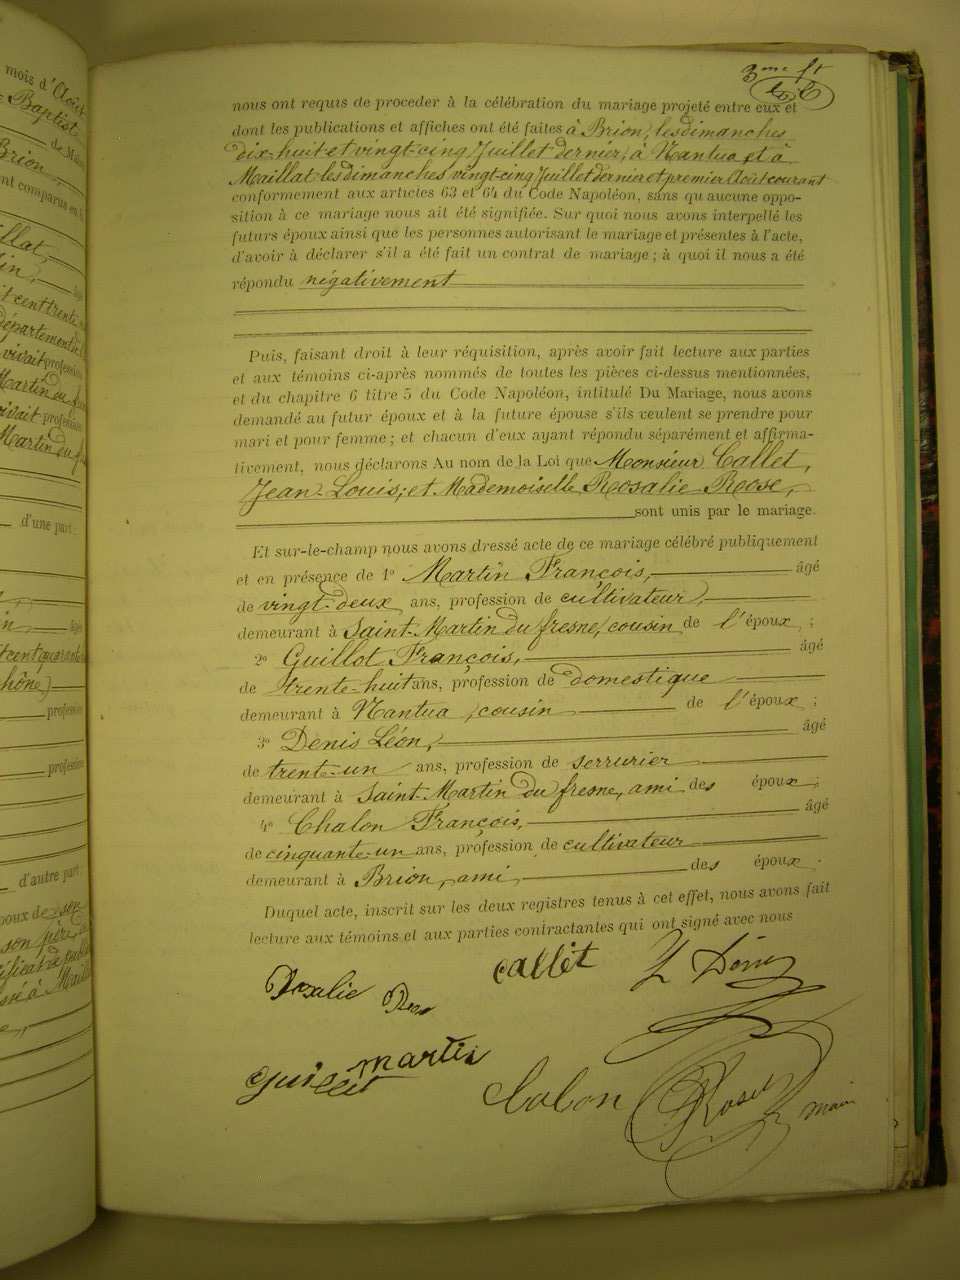 mois d'Août
Baptiste
de M
Brion,
ent comparus en
llat,
in,
âgé
t cent trente
département de
vivait profession
Martin du f
vivait profession
Martin du f
d'une part.
in
âgé
t cent quarante
hône)
profession
profession
d'autre part
poux de son
son père
tificat de publi
à Maill
3me ft
nous ont requis de proceder à la célébration du mariage projeté entre eux et
dont les publications et affiches ont été faites à Brion, les dimanches
dix-huit et vingt-cinq Juillet dernier, à Nantua et à
Maillat les dimanches vingt-cinq Juillet dernier et premier Août courant
conformement aux articles 63 et 64 du Code Napoléon, sans qu'aucune oppo-
sition à ce mariage nous ait été signifiée. Sur quoi nous avons interpellé les
futurs époux ainsi que les personnes autorisant le mariage et présentes à l'acte,
d'avoir à déclarer s'il a été fait un contrat de mariage ; à quoi il nous a été
répondu négativement
Puis, faisant droit à leur réquisition, après avoir fait lecture aux parties
et aux témoins ci-après nommés de toutes les pièces ci-dessus mentionnées,
et du chapitre 6 titre 5 du Code Napoléon, intitulé Du Mariage, nous avons
demandé au futur époux et à la future épouse s'ils veulent se prendre pour
mari et pour femme ; et chacun d'eux ayant répondu séparément et affirma-
tivement, nous déclarons Au nom de la Loi que Monsieur Callet,
Jean-Louis, et Mademoiselle Rosalie Rose,
sont unis par le mariage.
Et sur-le-champ nous avons dressé acte de ce mariage célébré publiquement
et en présence de 1º Martin François, âgé
de vingt-deux ans, profession de cultivateur,
demeurant à Saint-Martin du fresne, cousin de l'époux ;
2º Guillot François, âgé
de trente-huit ans, profession de domestique
demeurant à Nantua, cousin de l'époux ;
3º Denis Léon, âgé
de trente-un ans, profession de serrurier
demeurant à Saint-Martin du fresne, ami des époux ;
4º Chalon François, âgé
de cinquante-un ans, profession de cultivateur
demeurant à Brion, ami des époux.
Duquel acte, inscrit sur les deux registres tenus à cet effet, nous avons fait
lecture aux témoins et aux parties contractantes qui ont signé avec nous
Rosalie Rose
callet
L Denis
Guillot
martin
Calon
Rose
maire